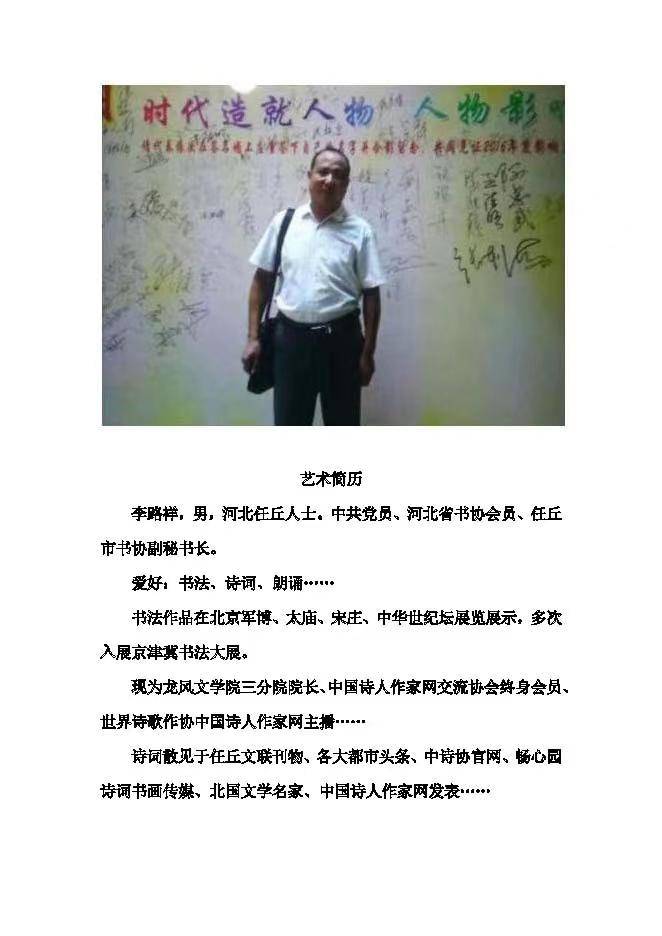 时代造就人物 人物影
艺术简历
李路祥，男，河北任丘人士。中共党员、河北省书协会员、任丘
市书协副秘书长。
爱好：书法、诗词、朗诵……
书法作品在北京军博、太庙、宋庄、中华世纪坛展览展示，多次
入展京津冀书法大展。
现为龙风文学院三分院院长、中国诗人作家网交流协会终身会员、
世界诗歌作协中国诗人作家网主播……
诗词散见于任丘文联刊物、各大都市头条、中诗协官网、畅心园
诗词书画传媒、北国文学名家、中国诗人作家网发表……